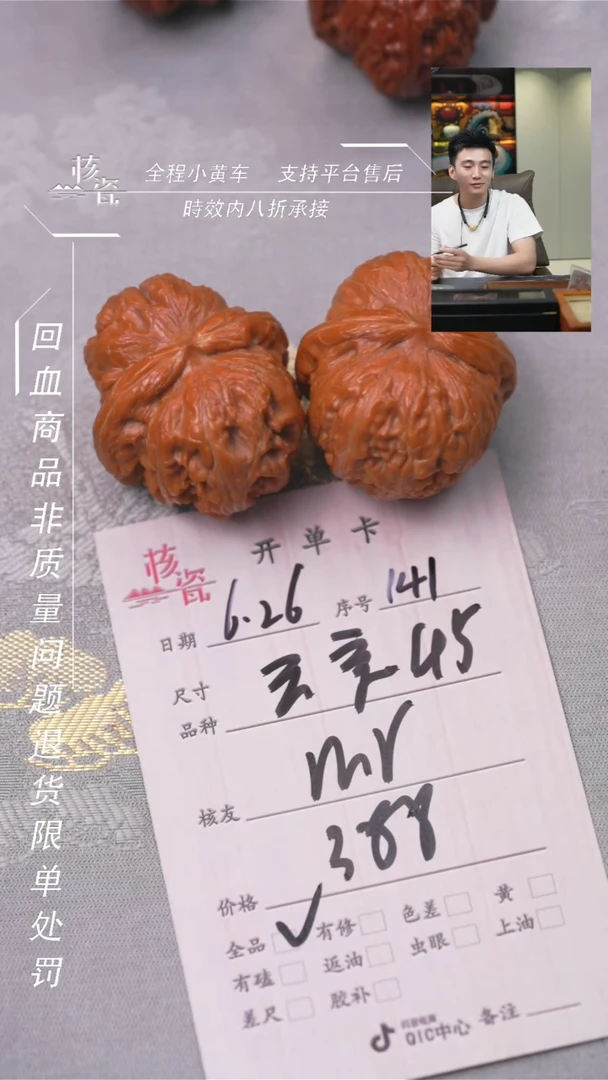 核瓷
全程小黄车 支持平台售后
時效内八折承接
回血商品非质量问题退货限单处罚
核瓷
开单卡
日期 6.26 序号 141
尺寸
品种 45
核友 mr
价格 388
全品 ✓ 有修 色差 黄
有磕 返油 虫眼 上油
差尺 胶补
QIC中心 备注